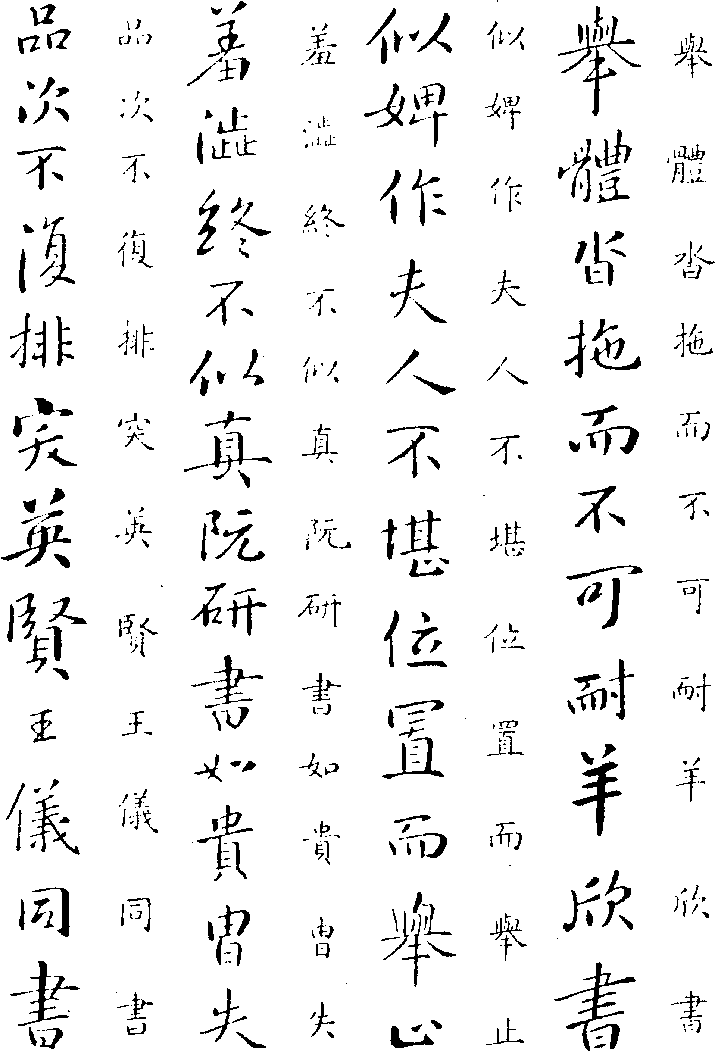 舉體沓拖而不可耐羊欣書
舉體沓拖而不可耐羊欣書
似婢作夫人不堪位置而舉止
似婢作夫人不堪位置而舉止
羞澁終不似真阮研書如貴冑失
羞澁終不似真阮研書如貴冑失
品次不復排突英賢王儀同書
品次不復排突英賢王儀同書